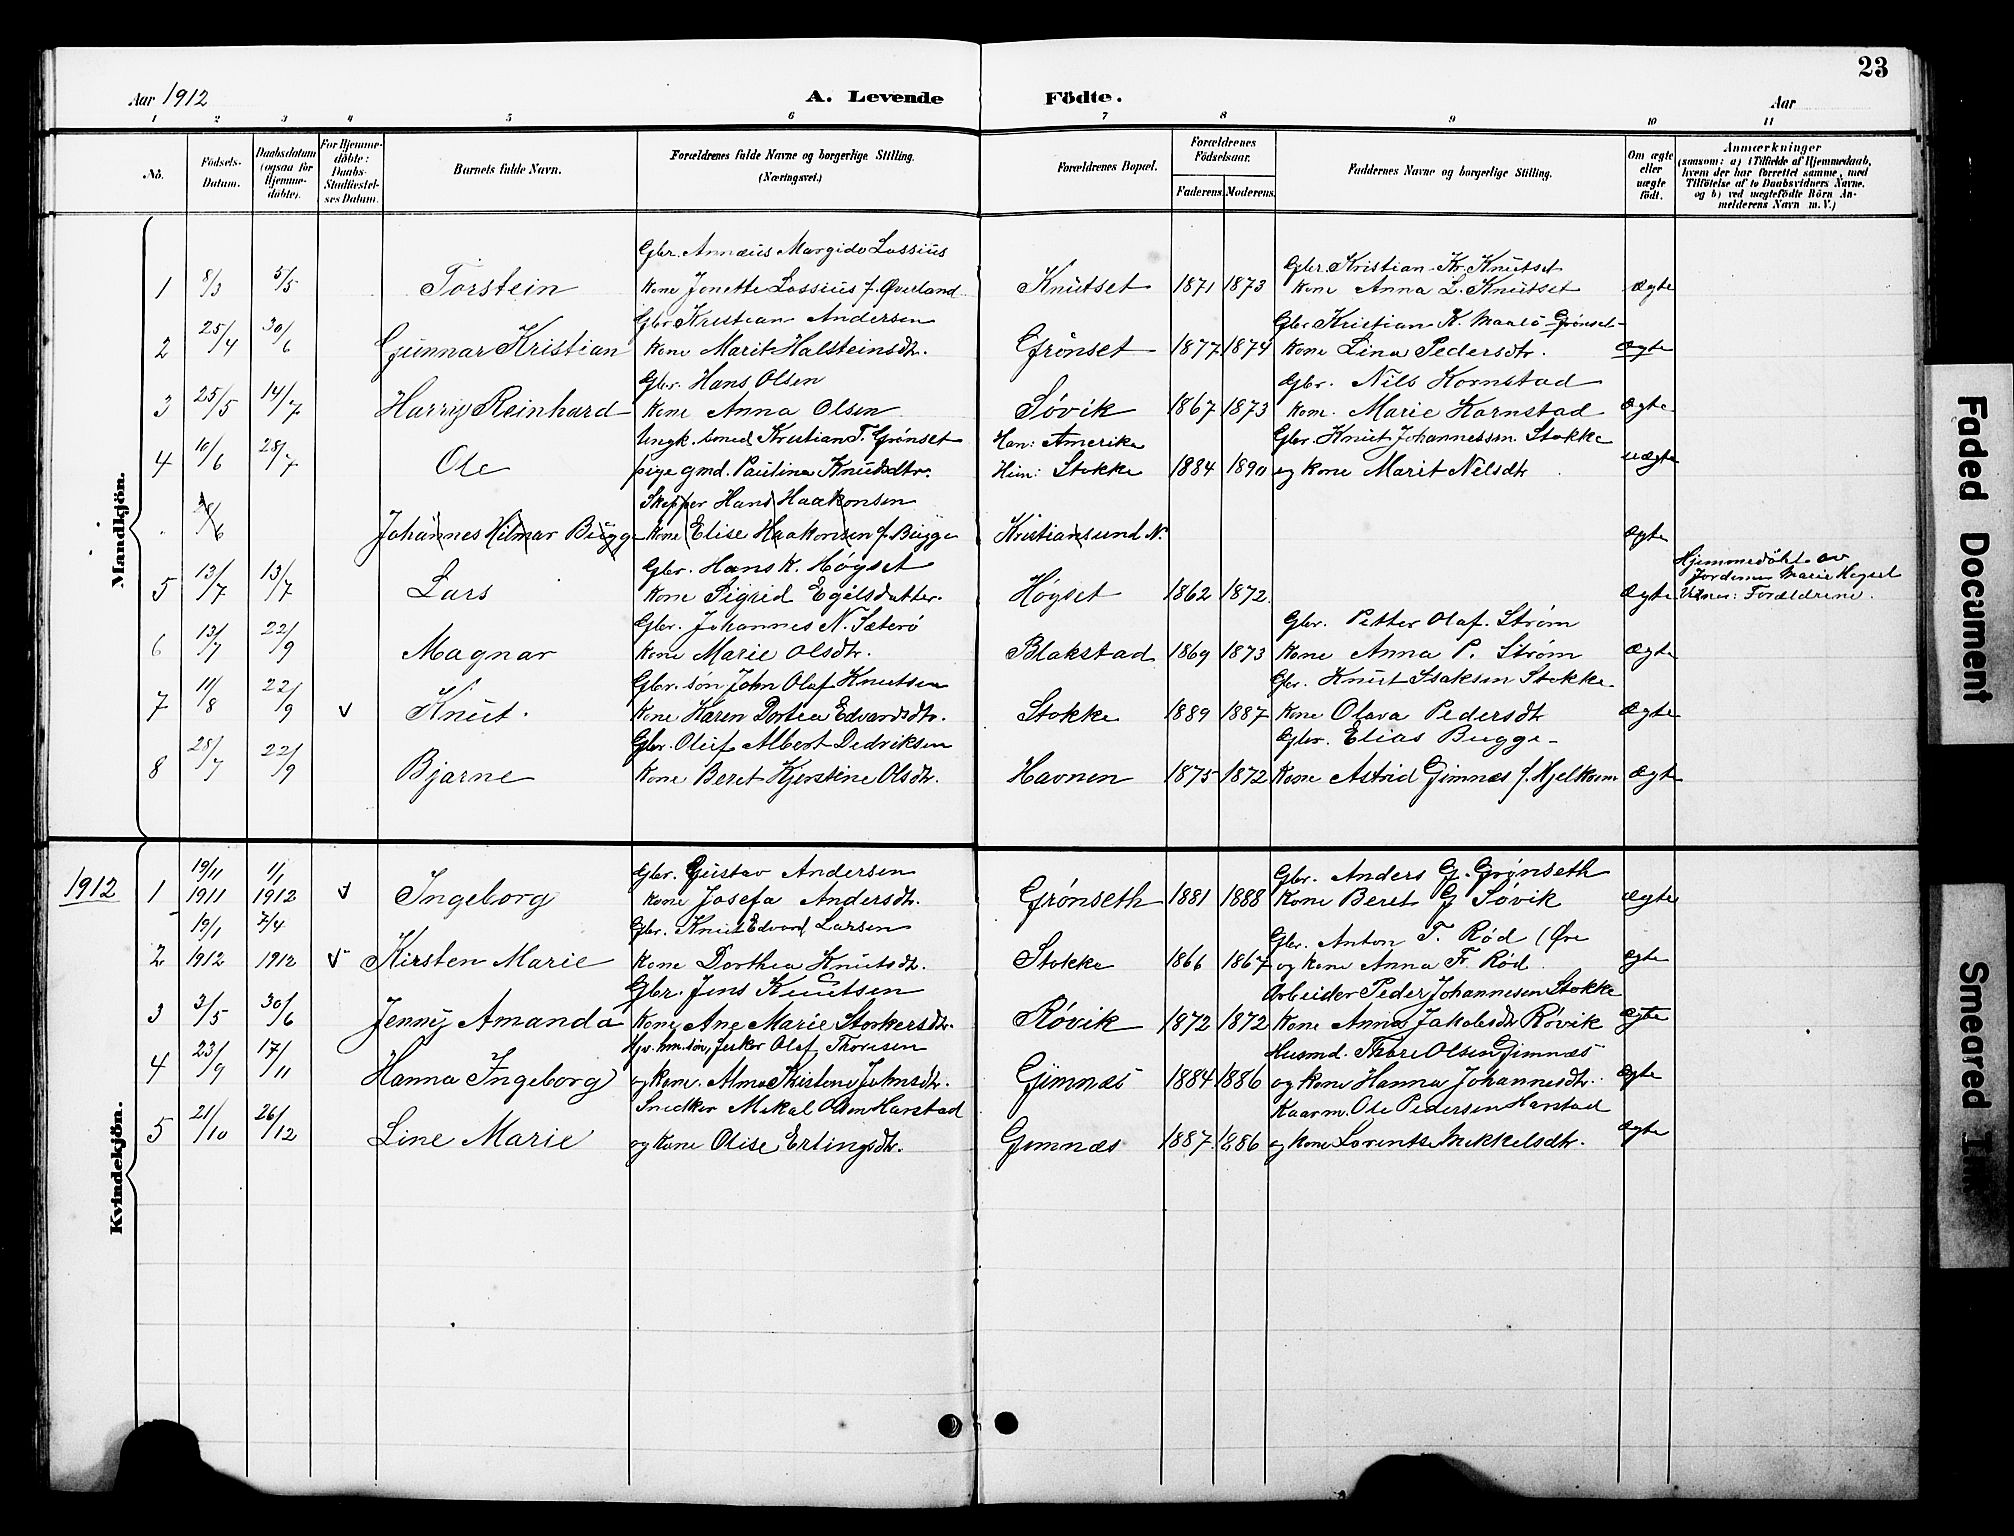 23
Aar 1912 A. Levende Födte. Aar
1 2 3 4 5 6 7 8 9 10 11
No. Födsels-Datum. Daabsdatum (ogsaa for Hjemme-döbte). For Hjemme-döbte: Daabs-Stadfæstel-ses Datum. Barnets fulde Navn. Forældrenes fulde Navne og borgerlige Stilling. (Næringsvei.) Forældrenes Bopæl. Forældrenes Födselsaar. Faderens. Moderens. Faddernes Navne og borgerlige Stilling. Om ægte eller uægte födt. Anmærkninger (saasom: a) i Tilfælde af Hjemmedaab, hvem der har forrettet samme, med Tilföielse af to Daabsvidners Navne, og b) ved uægtefödte Börn An-melderens Navn m. V.)
Mandkjön.
Gbr. Annæus Margido Lossius
Gbr. Kristian Kr. Knutset
1 8/3 5/5 Torstein Kone Jonette Lossius f. Øverland Knutset 1871 1873 Kone Anna L. Knutset ægte
Gbr Kristian Andersen
Gbr Kristian K. Maalö Grønset
2 25/4 30/6 Gunnar Kristian Kone Marit Halsteinsdtr. Grønset 1877 1874 Kone Lina Pedersdtr. ægte
Gbr. Hans Olsen
Gbr. Nils Kornstad
3 25/5 14/7 Harry Reinhard Kone Anna Olsen Søvik 1867 1873 Kone Marie Kornstad ægte
Ungk. Kristian T. Grønset Han: Amerika Gbr. Knut Johannessen Stokke
4 10/6 28/7 Ole pige gmd. Paulina Knutsdtr. Hun: Stokke 1884 1890 og Kone Marit Nilsdtr uægte
Skipper Hans Haakonsen
Johannes Hilmar Bugge Kone Elise Haakonsen f. Bugge Kristiansund N. ægte
Gbr. Hans K. Høgset Hjemmedöbt av
Jordemor Marie Høgset
5 13/7 13/7 Lars Kone Sigrid Egilsdatter. Høgset 1862 1872. Ægte Vitner: Forældrene.
Gbr. Johannes N. Sæterø Gbr. Petter Olaf Strøm
6 13/7 22/9 Magnar Kone Marie Olsdtr. Blakstad 1869 1873 Kone Anna P. Strøm Ægte
Gbr. søn John Olaf Knutsen Gbr. Knut Isaksen Stokke
7 11/8 22/9 v Knut. Kone Karen Dortea Edvardsdtr. Stokke 1889 1887 Kone Olava Pedersdtr Ægte
Gbr. Oluf Albert Dedriksen Gbr. Elias Bugge
8 28/7 22/9 Bjarne Kone Beret Kjerstine Olsdtr. Havnen 1875 1872 Kone Astrid Gimnæs f. Hjelkrem Ægte
Kvindekjön.
19/11 1/1 Gbr. Gustav Andersen Gbr. Anders G. Grønseth
1912 1 1911 1912 v Ingeborg Kone Josefa Andersdtr. Grønseth 1881 1888 Kone Beret G Søvik ægte
19/1 7/4 Gbr. Knut Edvard Larsen Gbr. Anton T. Rød (Øre
2 1912 1912 v Kirsten Marie Kone Dorthea Knutsdtr. Stokke 1866 1867 og Kone Anna F. Rød ægte
Gbr. Jens Knutsen Arbeider Peder Johannesen Stokke
3 3/5 30/6 Jenny Amanda Kone Ane Marie Storkersdtr. Røvik 1872 1872 Kone Anna Jakobsdtr Røvik ægte
søn, fisker Olaf Thoresen Husmd. Thore Olsen Gimnæs
4 23/9 17/11 Hanna Ingeborg og Kone Alma Kristine Johnsdtr. Gimnæs 1884 1886 og Kone Hanna Johannesdtr. ægte
Snedker Mikal Olsen Harstad Kaarm. Ole Pedersen Harstad
5 21/10 26/12 Line Marie og Kone Olise Erlingsdtr. Gimnæs 1887 1886 og Kone Lorentse Mikkelsdtr. ægte
Faded Document
Smeared